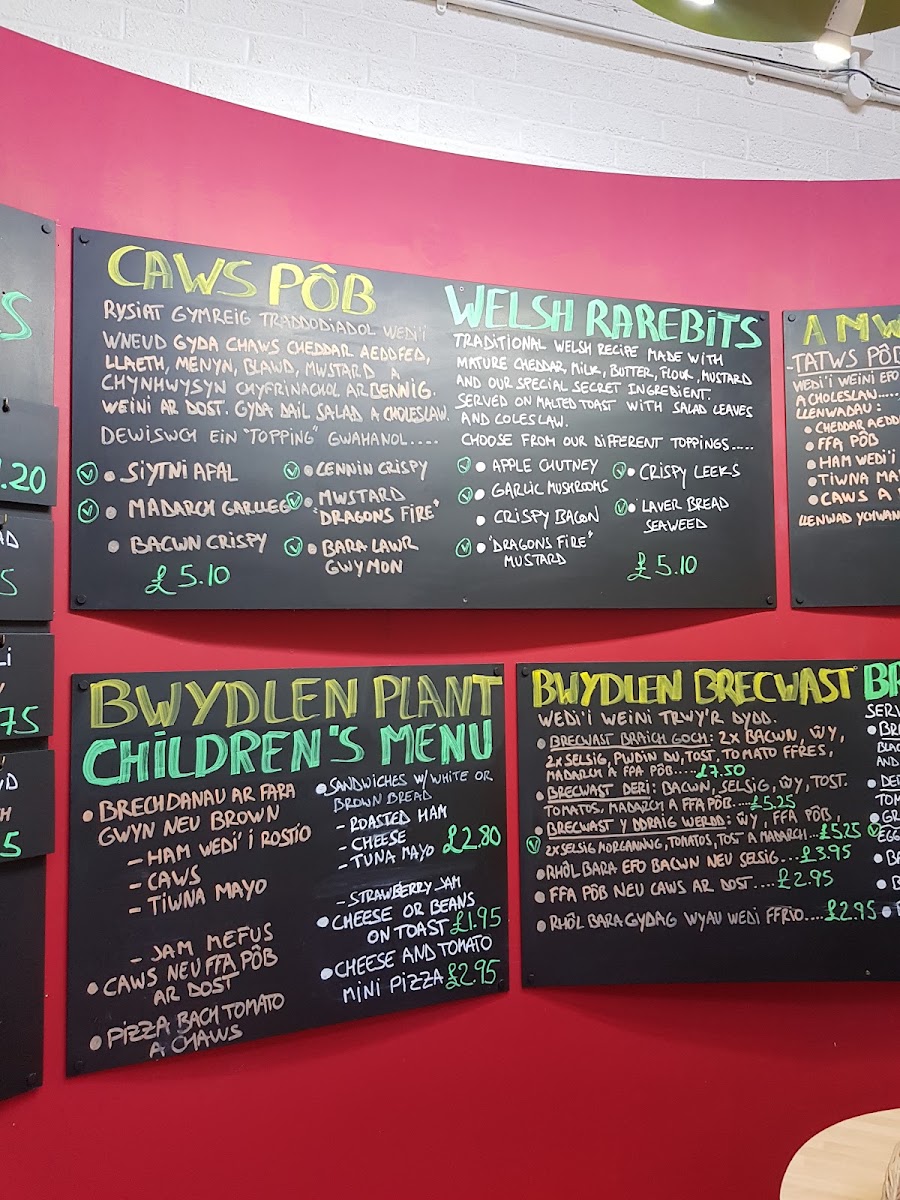 S
.20
AD
5
Li
75
D
5
CAWS PÔB
RYSIAT GYMREIG TRADDODIADOL WEDI'I
WNEUD GYDA CHAWS CHEDDAR AEDDFED,
LLAETH, MENYN, BLAWD, MWSTARD A
CHYNHWYSYN CHYFRINACHOL ARBENNIG.
WEINI AR DOST. GYDA DAIL SALAD A CHOLESLAW.
DEWISWCH EIN "TOPPING" GWAHANOL....
• SIYTNI AFAL
• MADARCH GARLLEG
• BACWN CRISPY
£5.10
• CENNIN CRISPY
• MWSTARD
"DRAGONS FIRE"
• BARA LAWR
GWYMON
WELSH RAREBITS
TRADITIONAL WELSH RECIPE MADE WITH
MATURE CHEDDAR, MILK, BUTTER, FLOUR, MUSTARD
AND OUR SPECIAL SECRET INGREDIENT.
SERVED ON MALTED TOAST WITH SALAD LEAVES
AND COLESLAW.
CHOOSE FROM OUR DIFFERENT TOPPINGS.....
• APPLE CHUTNEY
• GARLIC MUSHROOMS
• CRISPY BACON
• "DRAGONS FIRE"
MUSTARD
• CRISPY LEEKS
• LAVER BREAD
SEAWEED
£5.10
A MW
TATWS PÔB
WEDI'I WEINI EFO
A COLESLAW.....
LLENWADAU:
• CHEDDAR AEDD
• FFA PÔB
• HAM WEDI'
• TIWNA MA
• CAWS A
LLENWAD YCHWAN
BWYDLEN PLANT
CHILDREN'S MENU
• BRECHDANAU AR FARA
GWYN NEU BROWN
- HAM WEDI'I ROSTIO
- CAWS
- TIWNA MAYO
- JAM MEFUS
• CAWS NEU FFA PÔB
AR DOST
• PIZZA BACH TOMATO
A CHAWS
• SANDWICHES W/ WHITE OR
BROWN BREAD
- ROASTED HAM
- CHEESE £2.80
- TUNA MAYO
- STRAWBERRY JAM
• CHEESE OR BEANS
ON TOAST £1.95
• CHEESE AND TOMATO
MINI PIZZA £2.95
BWYDLEN BRECWAST
WEDI'I WEINI TRWY'R DYDD.
• BRECWAST BRAICH GOCH: 2X BACWN, ŴY,
2X SELSIG, PWDIN DU, TOST, TOMATO FFRES,
MADARCH A FFA PÔB....£7.50
• BRECWAST DERI: BACWN, SELSIG, ŴY, TOST.
TOMATOS, MADARCH A FFA PÔB....£5.25
• BRECWAST Y DDRAIG WERDD: ŴY, FFA PÔB,
2X SELSIG MORGANNWG, TOMATOS, TOST A MADARCH...£5.25
• RHÔL BARA EFO BACWN NEU SELSIG...£3.95
• FFA PÔB NEU CAWS AR DOST....£2.95
• RHÔL BARA GYDAG WYAU WEDI FFRIO....£2.95
BR
SERV
• BRE
BLAC
AND
• DE
TOM
• GR
EGG
• BA